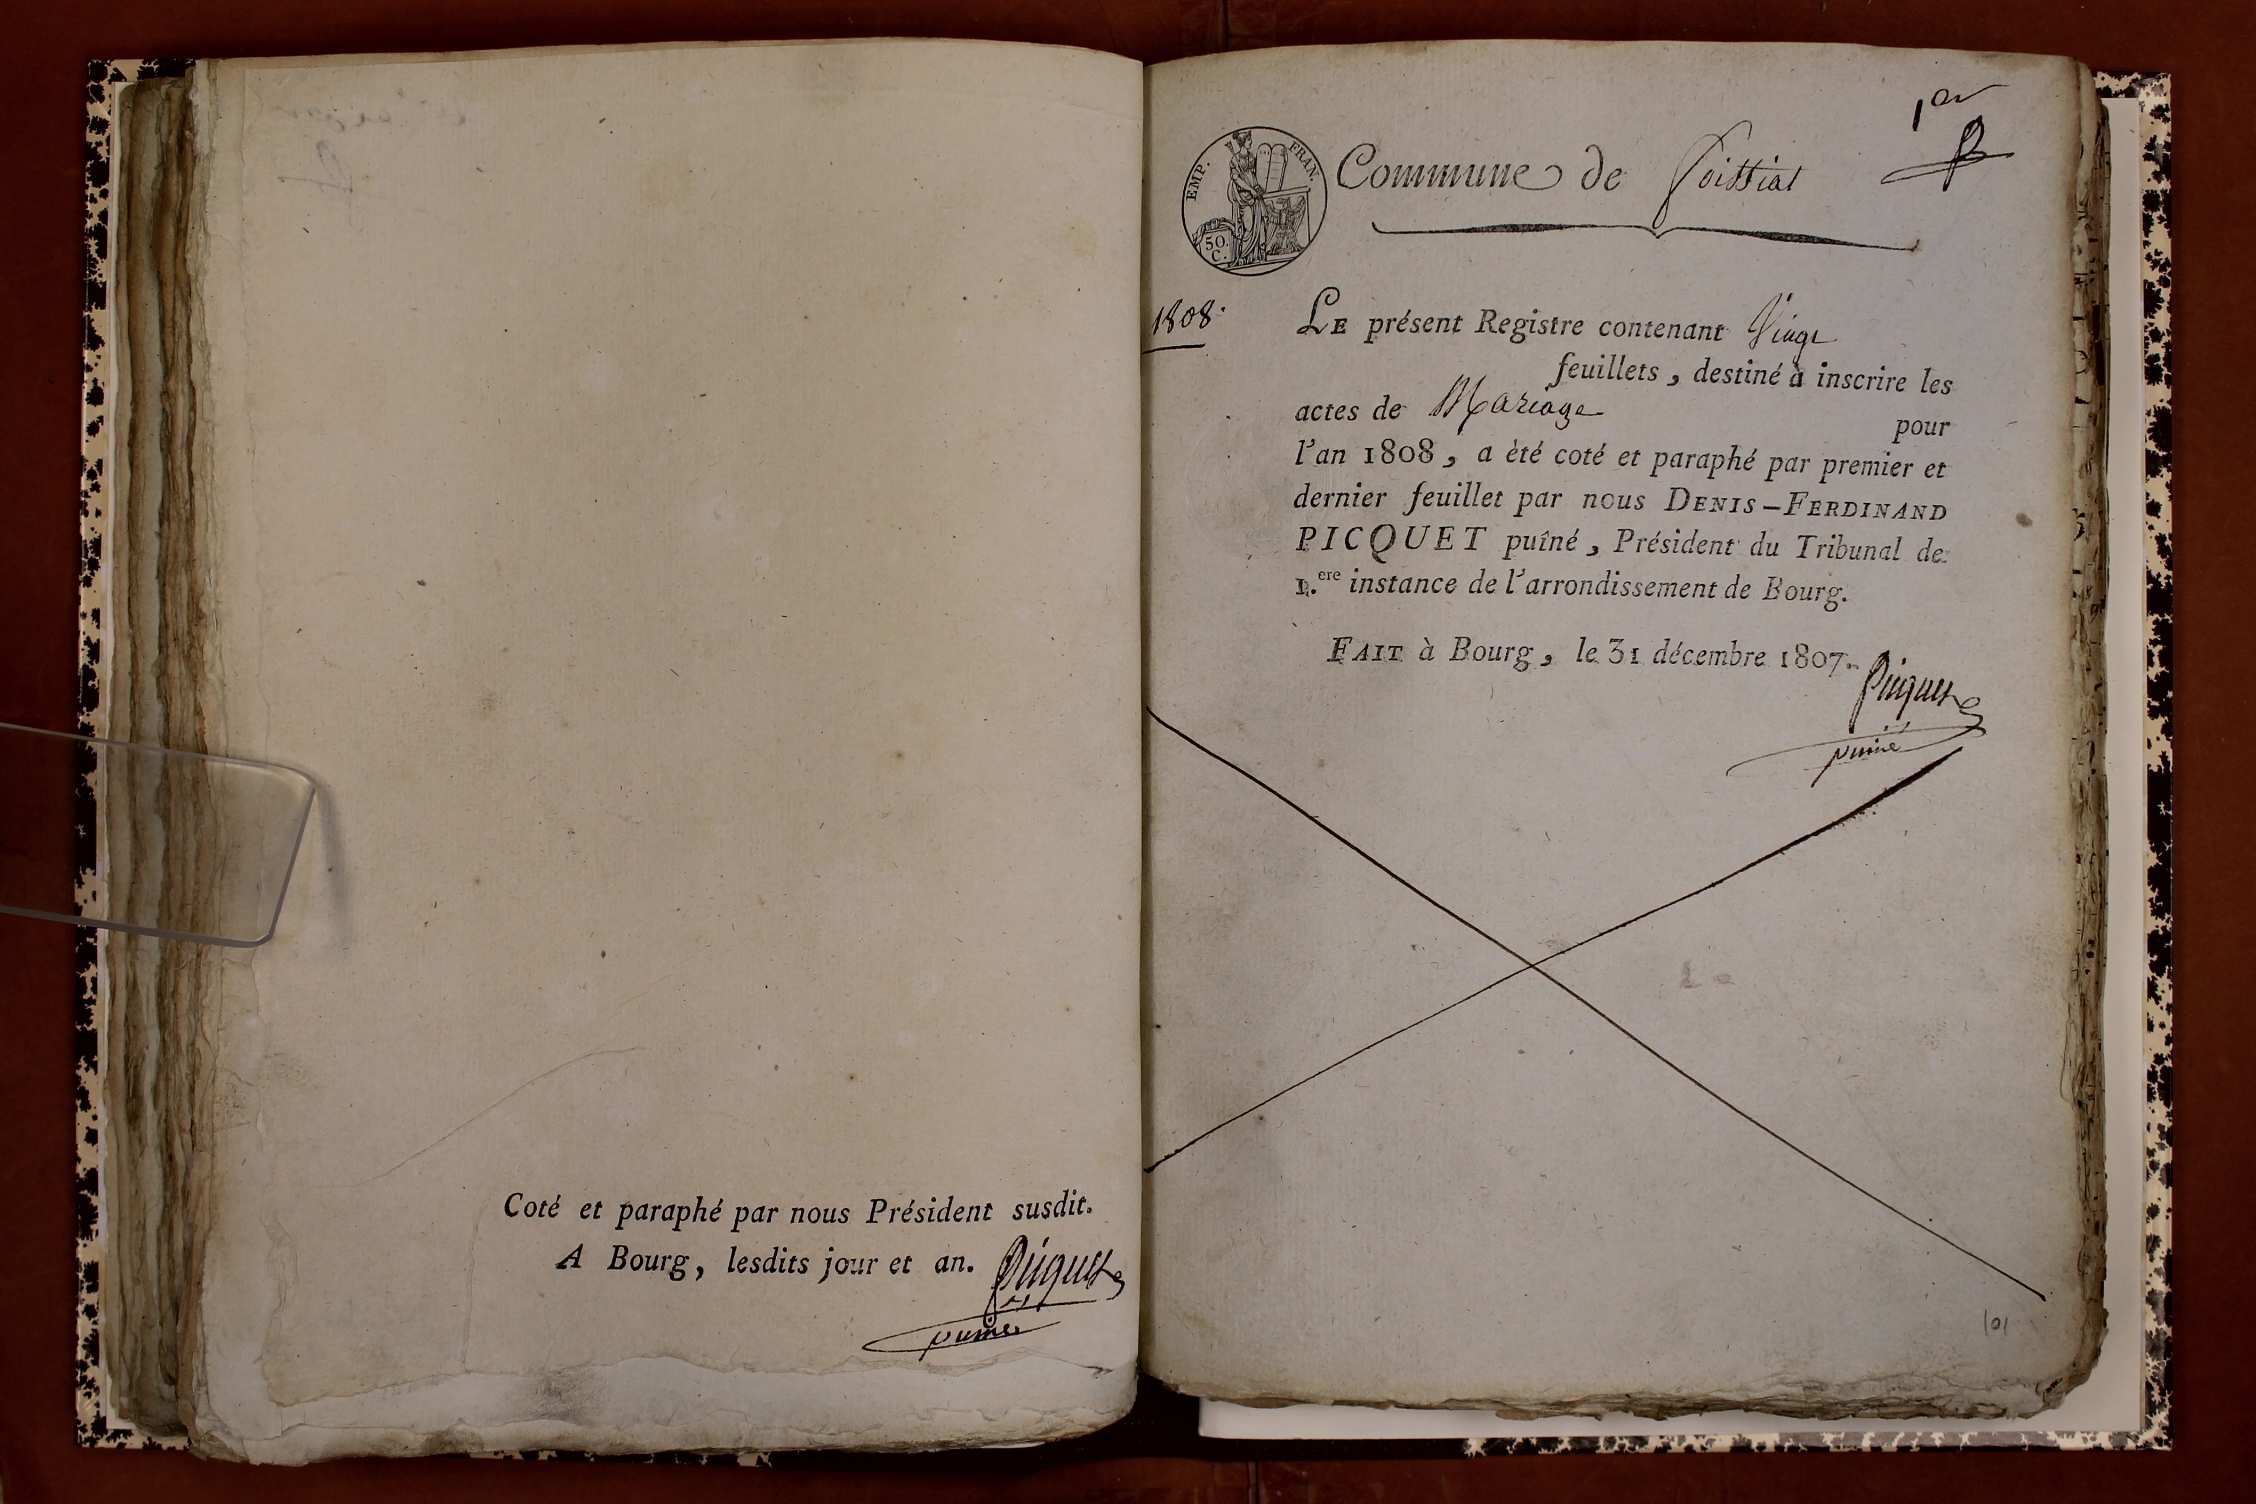 Coté et paraphé par nous Président susdit.
A Bourg, lesdits jour et an. Picquet
puiné
1er
EMP. FRAN.
50.
C.
Commune de Foissiat
1808.
LE présent Registre contenant Vingt
feuillets, destiné à inscrire les
actes de Mariage pour
l'an 1808, a èté coté et paraphé par premier et
dernier feuillet par nous DENIS-FERDINAND
PICQUET puîné, Président du Tribunal de
1.ere instance de l'arrondissement de Bourg.
FAIT à Bourg, le 31 décembre 1807.
Picquet
puiné
101